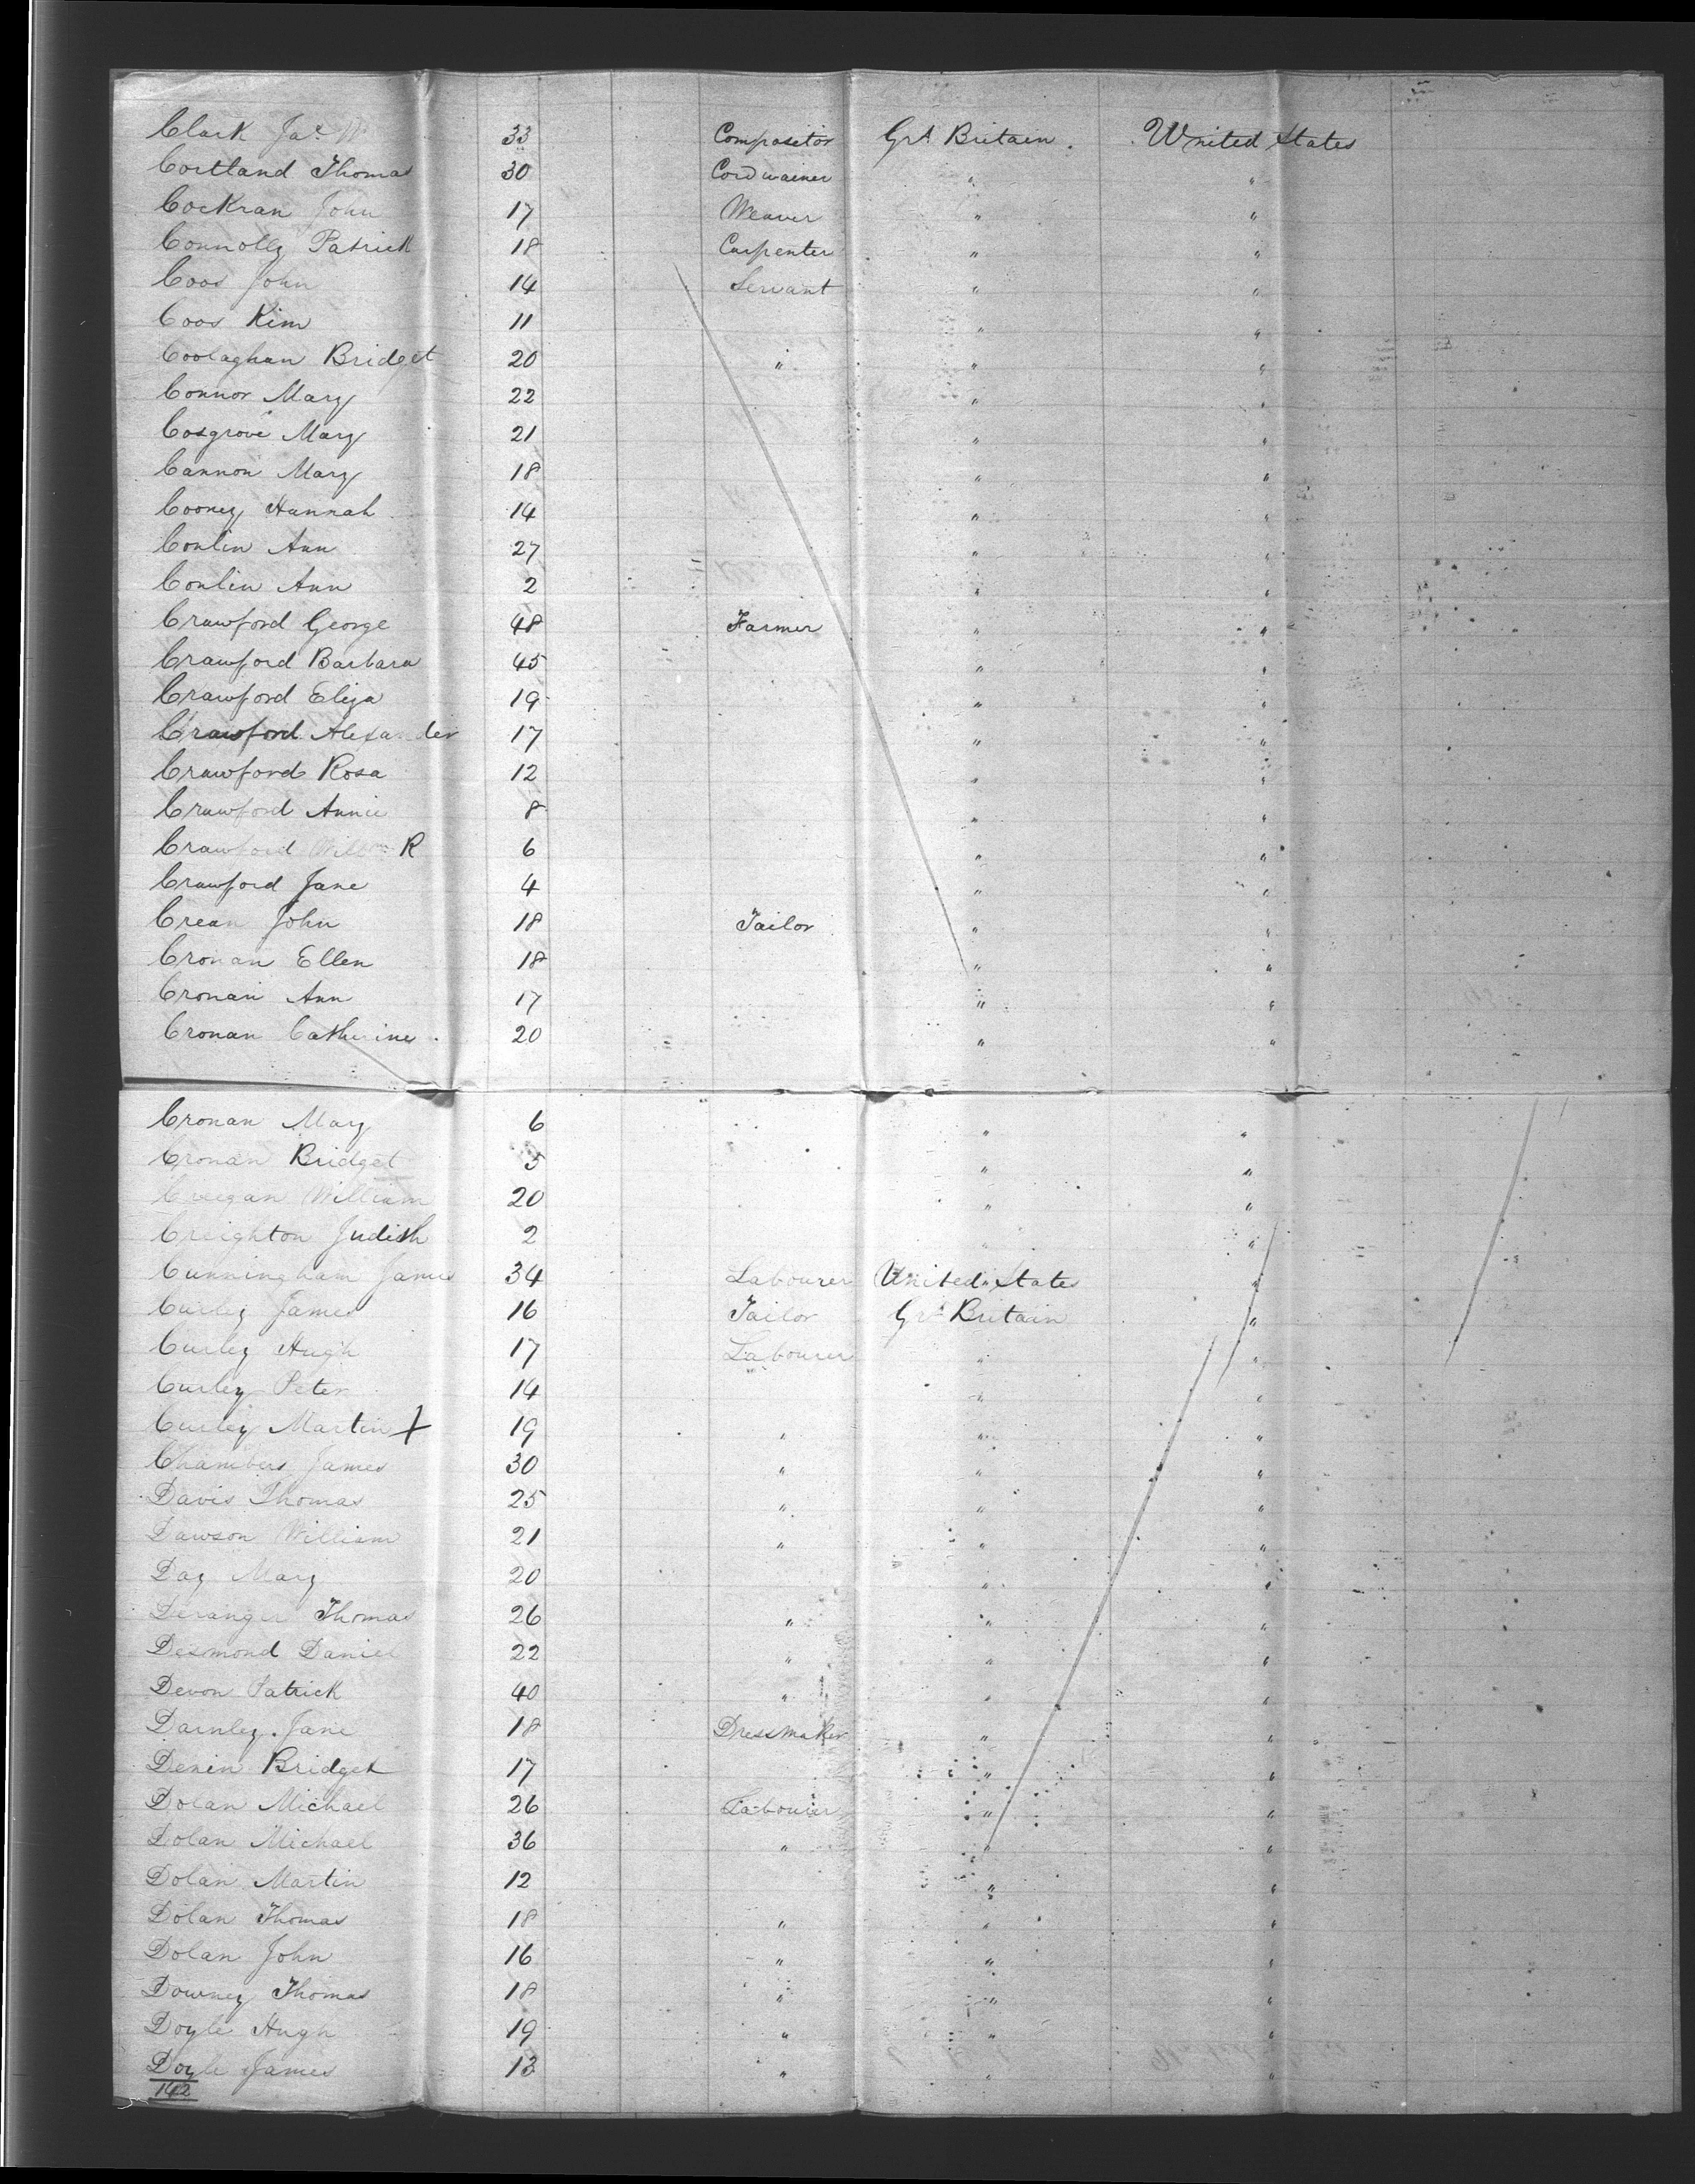 Clark Jas W 33 Compositor Grt Britain. United States
Cortland Thomas 30 Cordwainer " "
Cockran John 17 Weaver " "
Connolly Patrick 18 Carpenter " "
Coos John 14 Servant " "
Coos Kim 11 " "
Coolaghan Bridget 20 " " "
Connor Mary 22 " "
Cosgrove Mary 21 " "
Cannon Mary 18 " "
Cooney Hannah 14 " "
Conlin Ann 27 " "
Conlin Ann 2 " "
Crawford George 48 Farmer " "
Crawford Barbara 45 " "
Crawford Eliza 19 " "
Crawford Alexander 17 " "
Crawford Rosa 12 " "
Crawford Annie 8 " "
Crawford Willm R 6 " "
Crawford Jane 4 " "
Crean John 18 Tailor " "
Cronan Ellen 18 " "
Cronan Ann 17 " "
Cronan Catherine 20 " "
Cronan Mary 6 " "
Cronan Bridget 5 " "
Creegan William 20 " "
Creighton Judith 2 " "
Cunningham James 34 Labourer United States "
Curley James 16 Tailor Grt Britain "
Curley Hugh 17 Labourer " "
Curley Peter 14 " "
Curley Martin X 19 " " "
Chambers James 30 " " "
Davis Thomas 25 " " "
Dawson William 21 " " "
Day Mary 20 " "
Thomas 26 " " "
Desmond Daniel 22 " " "
Devon Patrick 40 " " "
Darnley Jane 18 Dressmaker " "
Denin Bridget 17 " "
Dolan Michael 26 Labourer " "
Dolan Michael 36 " " "
Dolan Martin 12 " "
Dolan Thomas 18 " " "
Dolan John 16 " " "
Downey Thomas 18 " " "
Doyle Hugh 19 " " "
Doyle James 13 " " "
142